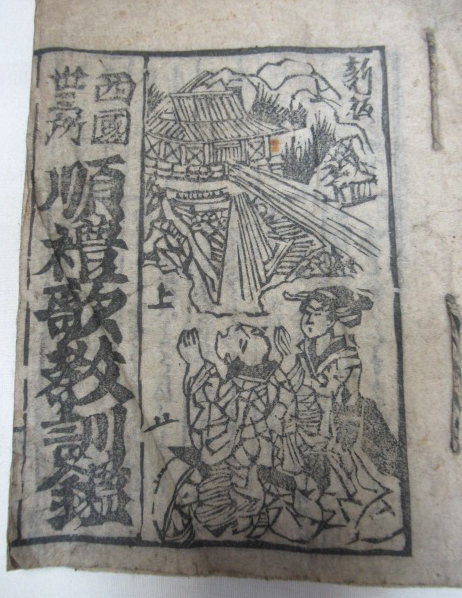 新板
上
西國
丗三所
順禮歌教訓鑑